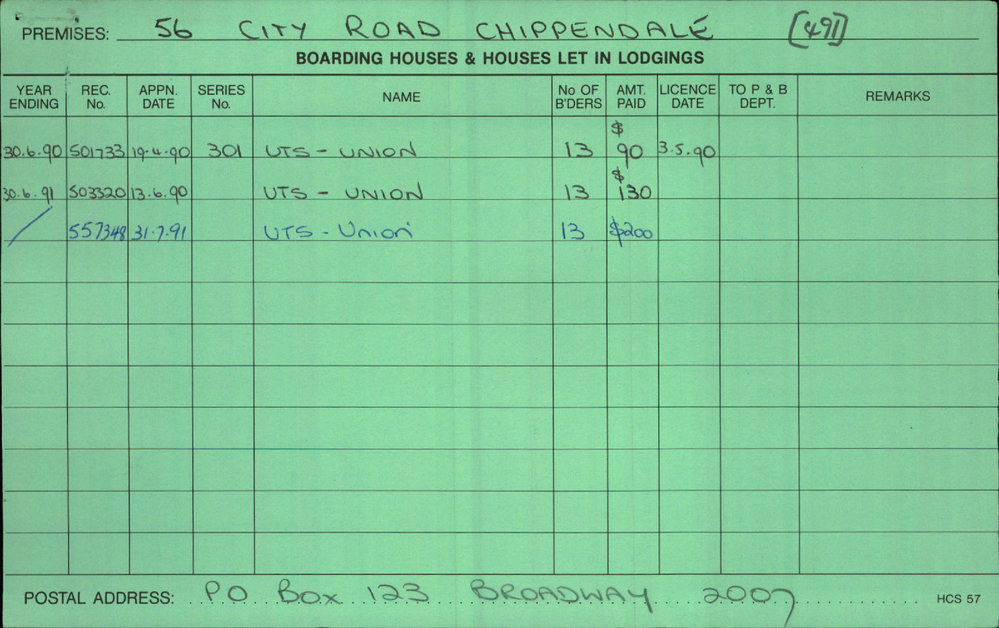 PREMISES: 56 CITY ROAD CHIPPENDALE [491]
BOARDING HOUSES & HOUSES LET IN LODGINGS
YEAR ENDING REC. No. APPN. DATE SERIES No. NAME No OF B'DERS AMT. PAID LICENCE DATE TO P & B DEPT. REMARKS
30.6.90 501733 19-4-90 301 UTS - UNION 13 $90 3.5.90
30.6.91 503320 13.6.90 UTS - UNION 13 $130
/ 557348 31-7-91 UTS - Union 13 $200
POSTAL ADDRESS: PO Box 123 BROADWAY 2007 HCS 57